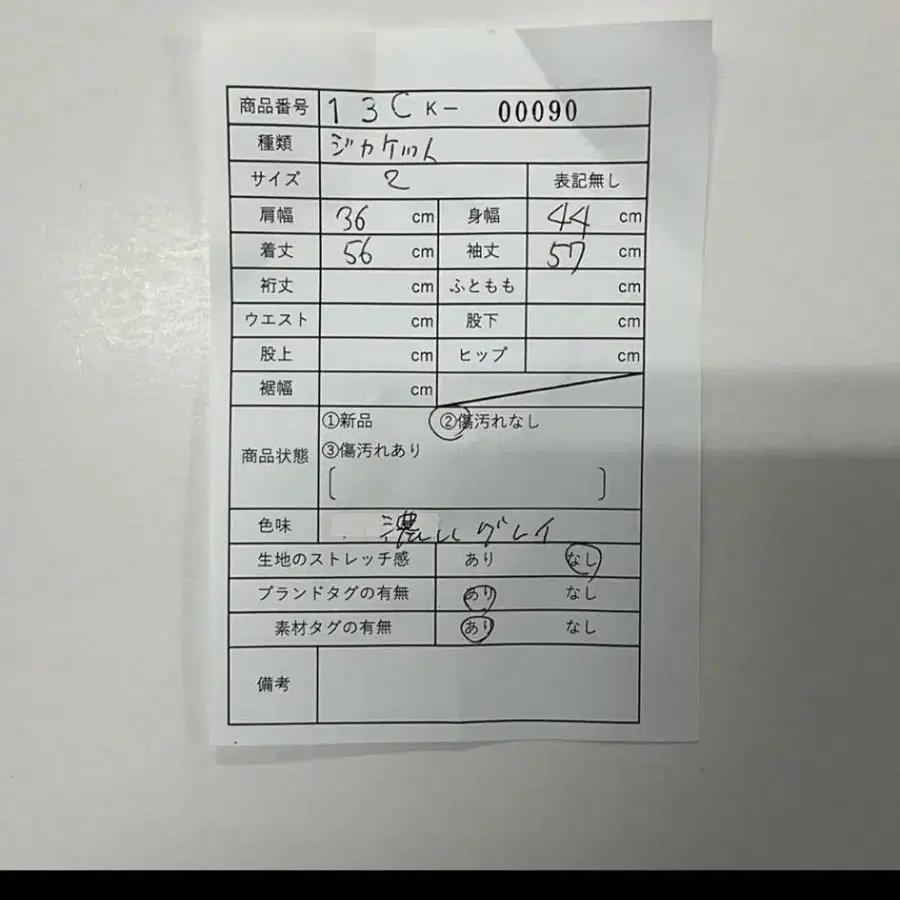 商品番号 13C K- 00090
種類 ジャケット
サイズ 2 表記無し
肩幅 36 cm 身幅 44 cm
着丈 56 cm 袖丈 57 cm
裄丈 cm ふともも cm
ウエスト cm 股下 cm
股上 cm ヒップ cm
裾幅 cm
商品状態 ①新品 ②傷汚れなし
③傷汚れあり
[ ]
色味 濃いグレイ
生地のストレッチ感 あり なし
ブランドタグの有無 あり なし
素材タグの有無 あり なし
備考